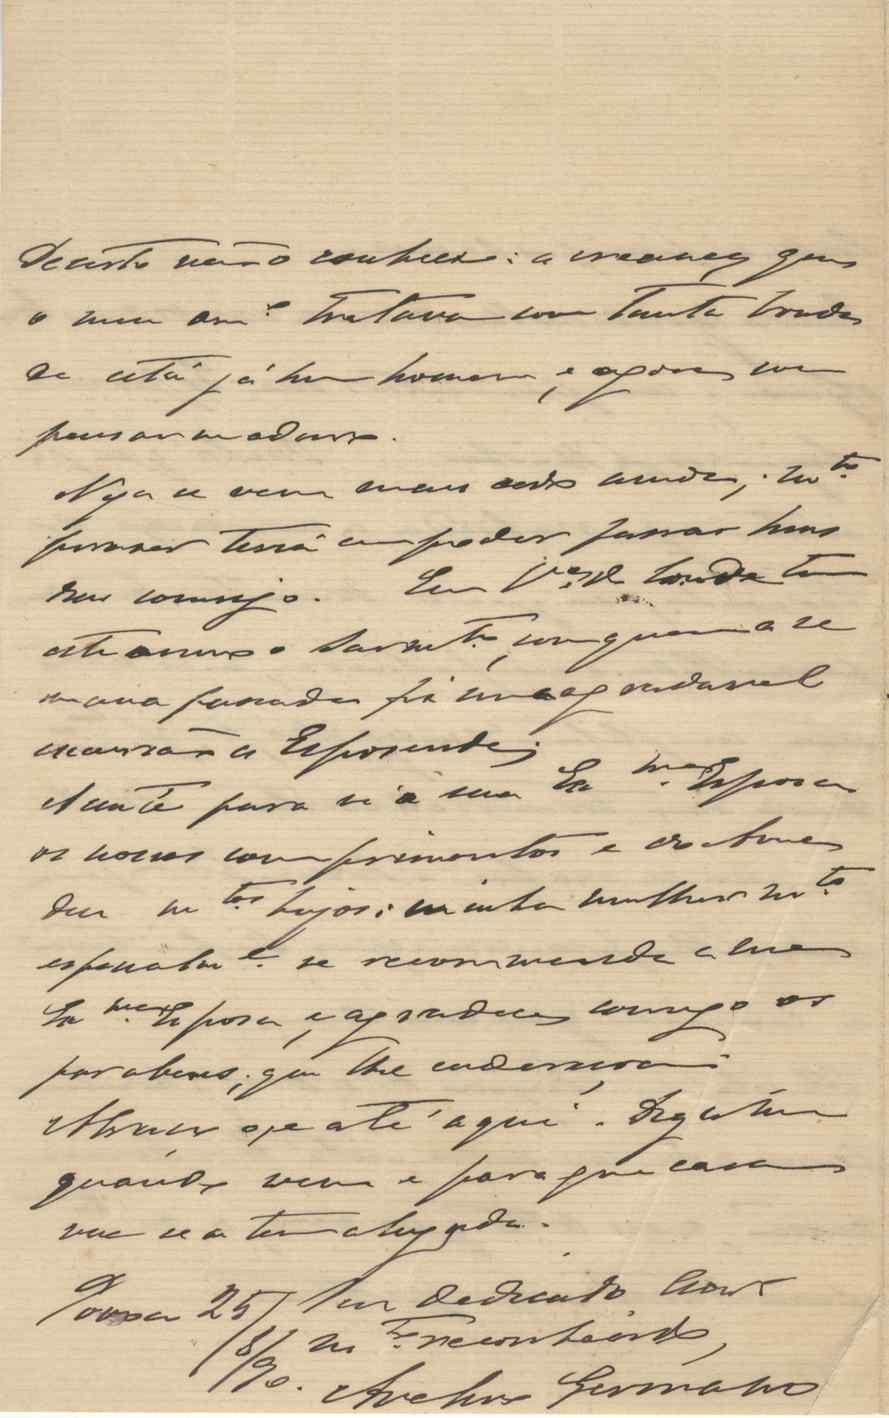 Decerto não o conhece: a creança que
o meu am.º tratava com tanta bonda
de está já hum homem, e agora com
pensar maduro.
Veja se vem mais cedo ainda; m.to
praser terá em poder passar huns
dias comsigo. Em V.ª do Conde tem
estado o com quem a se
mana passada fiz uma agradavel
excursão a Esposende;
Acceite para si e sua Ex.ma Esposa
os nossos comprimentos e
dou m.tos beijos; minha mulher m.to
especialm.e se recommenda a sua
Ex.ma Esposa, e agradece comigo os
parabens, que lhe endereçou
Abraça-o, e até aqui. Diga-me
quando vem e para que casa
vae se a tem alugada.
Povoa 25/8/90.
Seu dedicado
m.to reconhecido,
Germano